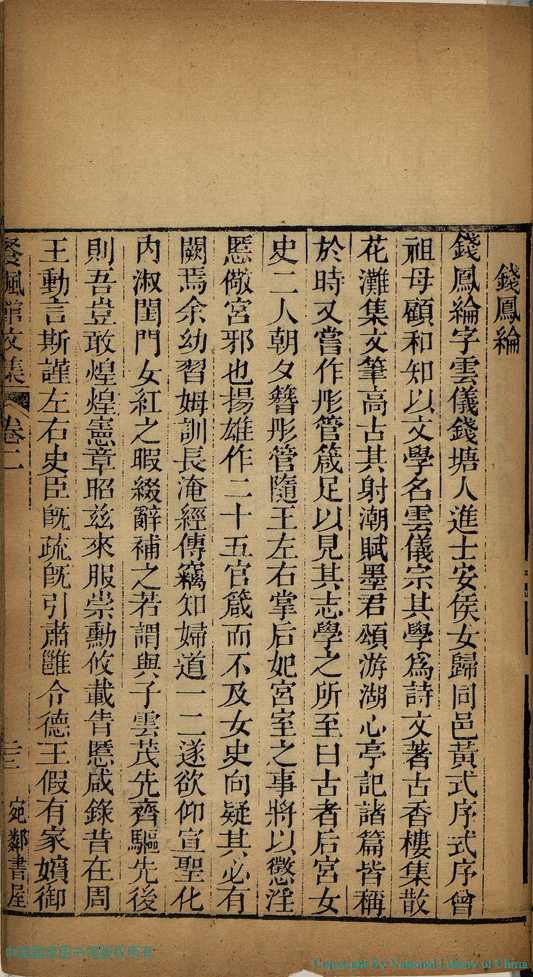 錢鳳綸
錢鳳綸字雲儀錢塘人進士安侯女歸同邑黃式序式序曾
祖母顧和知以文學名雲儀宗其學爲詩文著古香樓集散
花灘集文筆高古其射潮賦墨君頌游湖心亭記諸篇皆稱
於時又嘗作彤管箴足以見其志學之所至曰古者后宮女
史二人朝夕簪彤管隨王左右掌后妃宮室之事將以懲淫
慝儆宮邪也揚雄作二十五官箴而不及女史向疑其必有
闕焉余幼習姆訓長淹經傳竊知婦道一二遂欲仰宣聖化
內淑閨門女紅之暇綴辭補之若謂與子雲茂先齊驅先後
則吾豈敢煌煌憲章昭茲來服崇勳攸載眚慝咸錄昔在周
王動言斯謹左右史臣旣疏旣引肅雝介德王假有家嬪御
餐楓館文集 卷二 三 宛鄰書屋
中国国家图书馆版权所有
Copyright By National Library of China